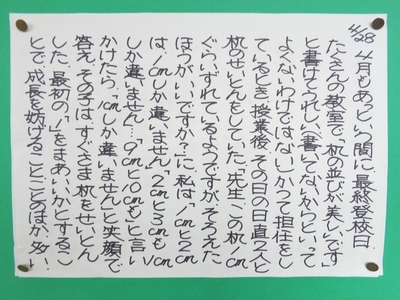 4/28
4月もあっという間に最終登校日。
たくさんの教室で「机の並びが美しいです」
と書けてうれしい(書いてないからといって
よくないわけではない)かつて担任をし
ているとき、授業後、その日の日直2人と
机のせいとんをしていた。「先生、この机、1cm
ぐらいずれているようですが、そろえた
ほうがいいですか?」に私は「1cmと2cm
は、1cmしか違いません」「2cmと3cmも1cm
しか違いません…9cmと10cmも」と言い
かけたら、「1cmしか違いませんと笑顔で
答え、その子はすぐさま机をせいとん
した。最初の「1」をまあいいかとするこ
とで、成長を妨げることことのほか多い